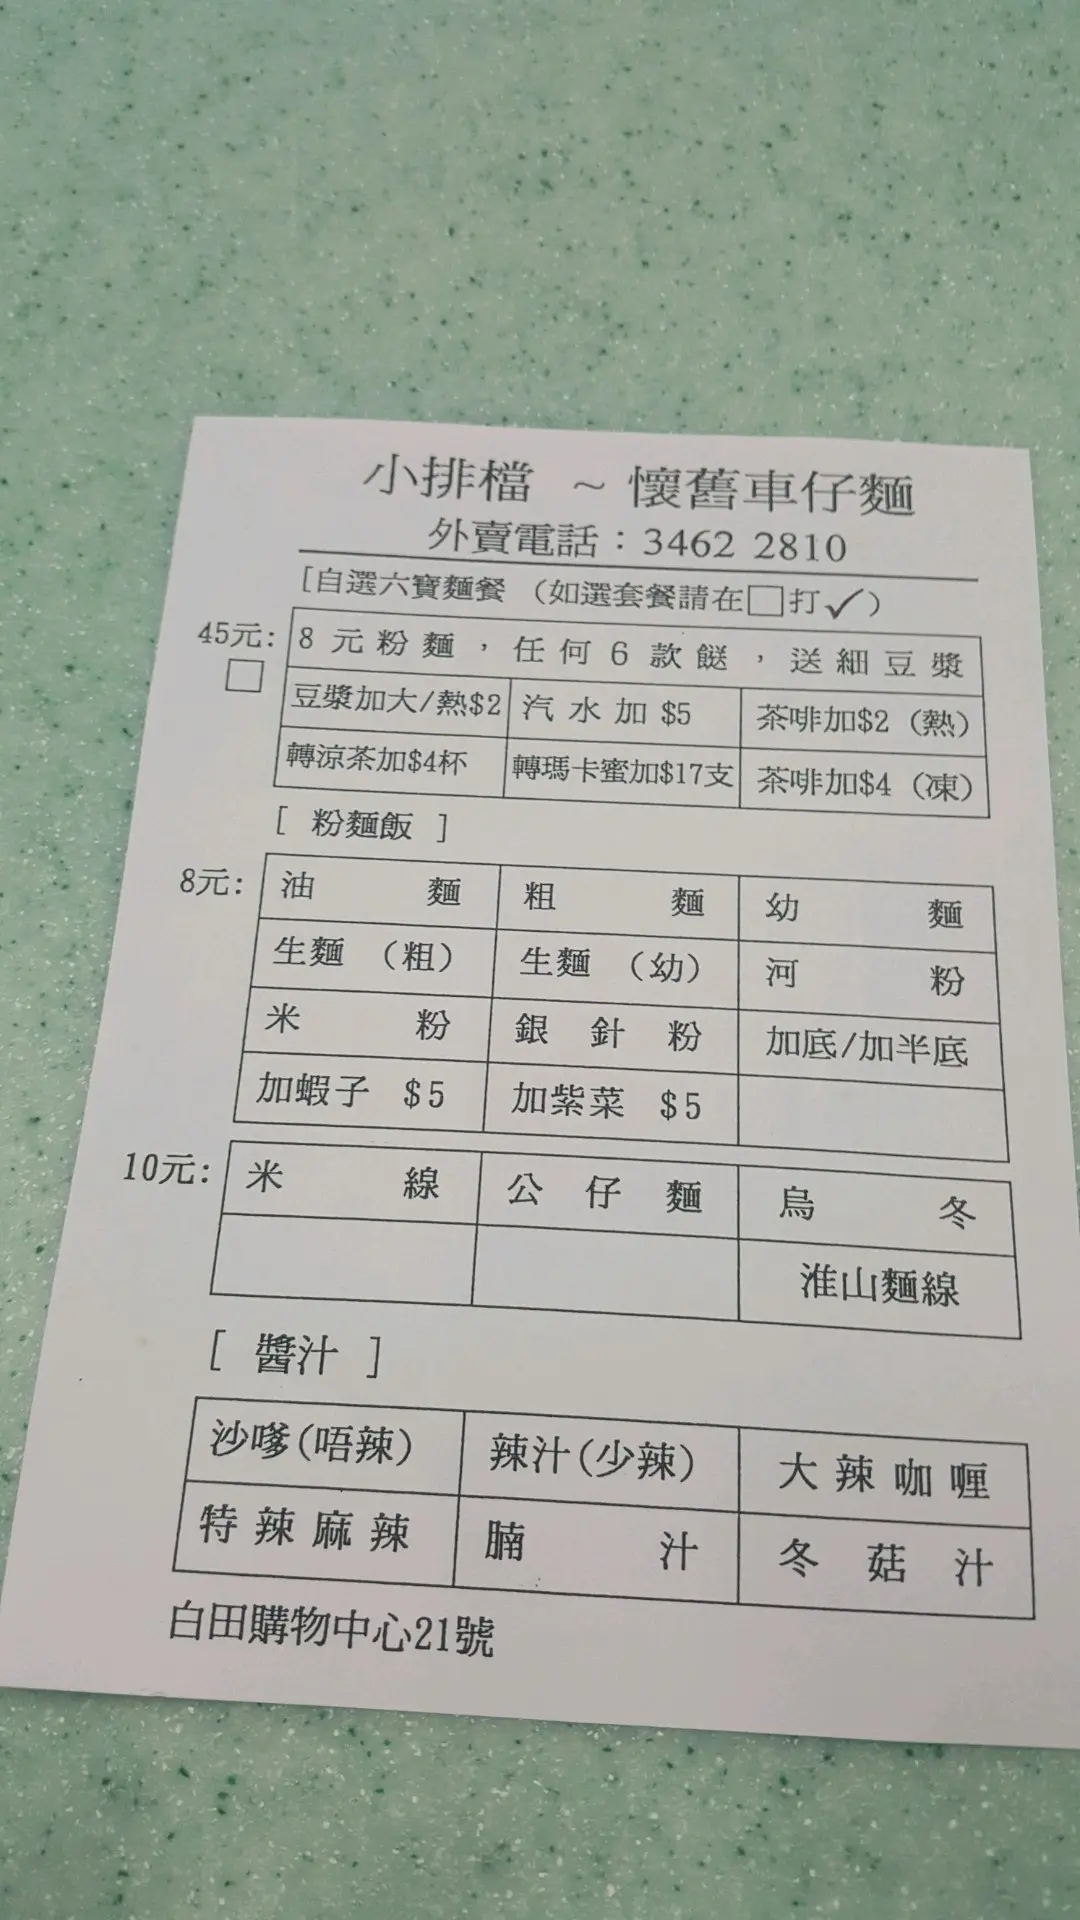 小排檔 ~ 懷舊車仔麵
外賣電話：3462 2810
[自選六寶麵餐 （如選套餐請在□打✓）
45元: 8元粉麵，任何6款餸，送細豆漿
□ 豆漿加大/熱$2 汽水加 $5 茶啡加$2（熱）
轉涼茶加$4杯 轉瑪卡蜜加$17支 茶啡加$4（凍）
[ 粉麵飯 ]
8元: 油麵 粗麵 幼麵
生麵（粗） 生麵（幼） 河粉
米粉 銀針粉 加底/加半底
加蝦子 $5 加紫菜 $5
10元: 米線 公仔麵 烏冬
淮山麵線
[ 醬汁 ]
沙嗲(唔辣) 辣汁(少辣) 大辣咖喱
特辣麻辣 腩汁 冬菇汁
白田購物中心21號